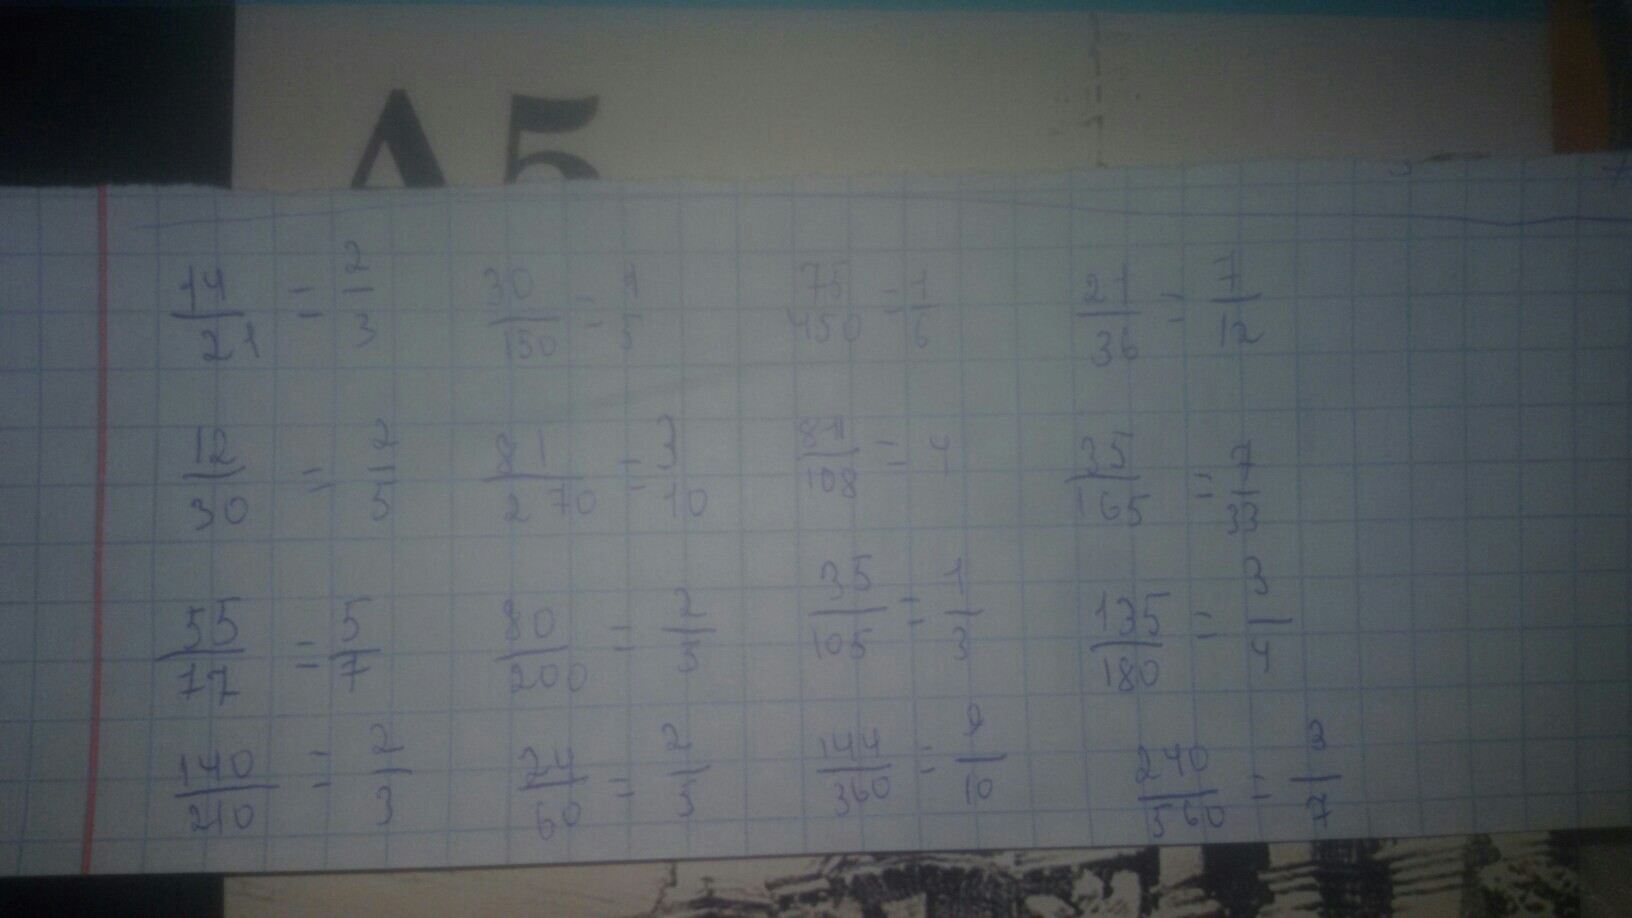 A5
14/21 = 2/3 30/150 = 1/5 75/450 = 1/6 21/36 = 7/12
12/30 = 2/5 81/270 = 3/10 /108 = 35/165 = 7/33
55/77 = 5/7 80/200 = 2/5 35/105 = 1/3 135/180 = 3/4
140/210 = 2/3 24/60 = 2/5 144/360 = /10 240/560 = 3/7